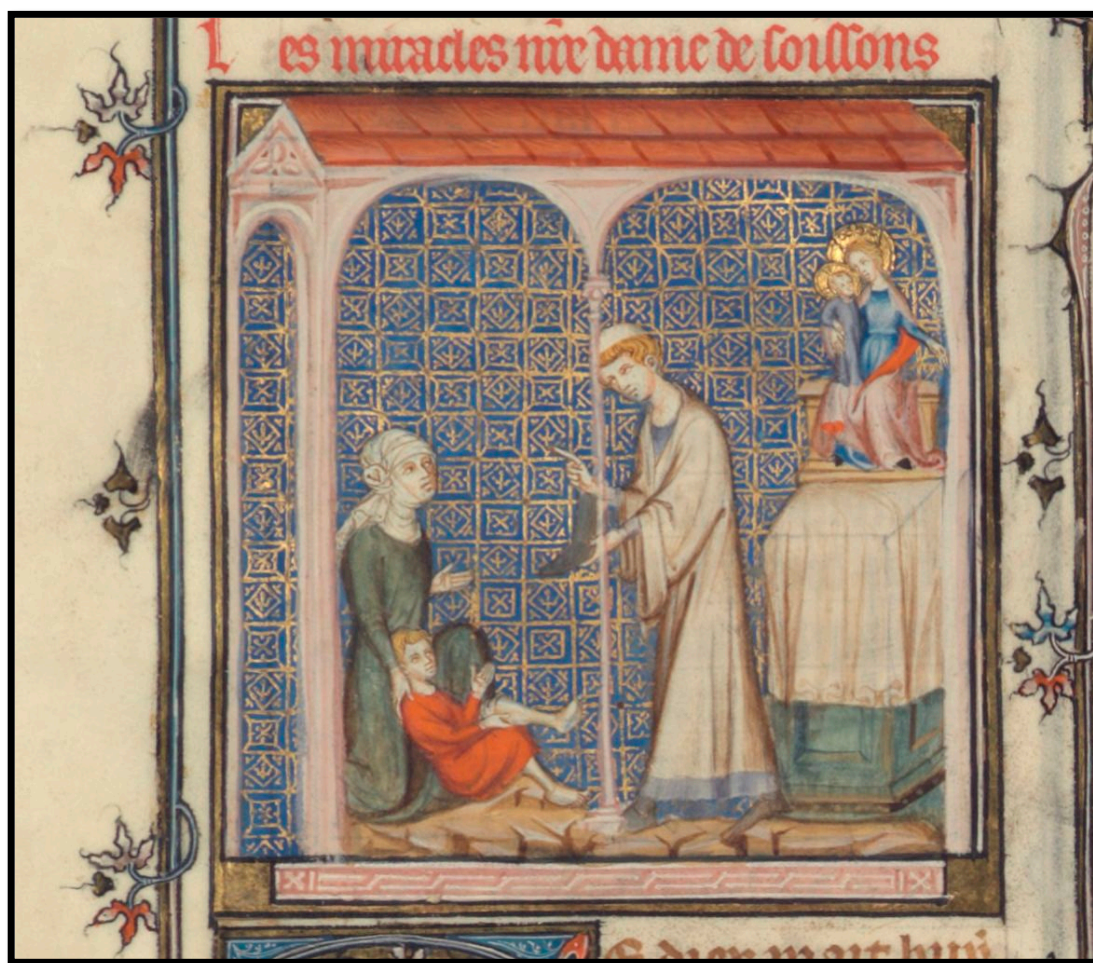 Les miracles nr̃e dame de soissons